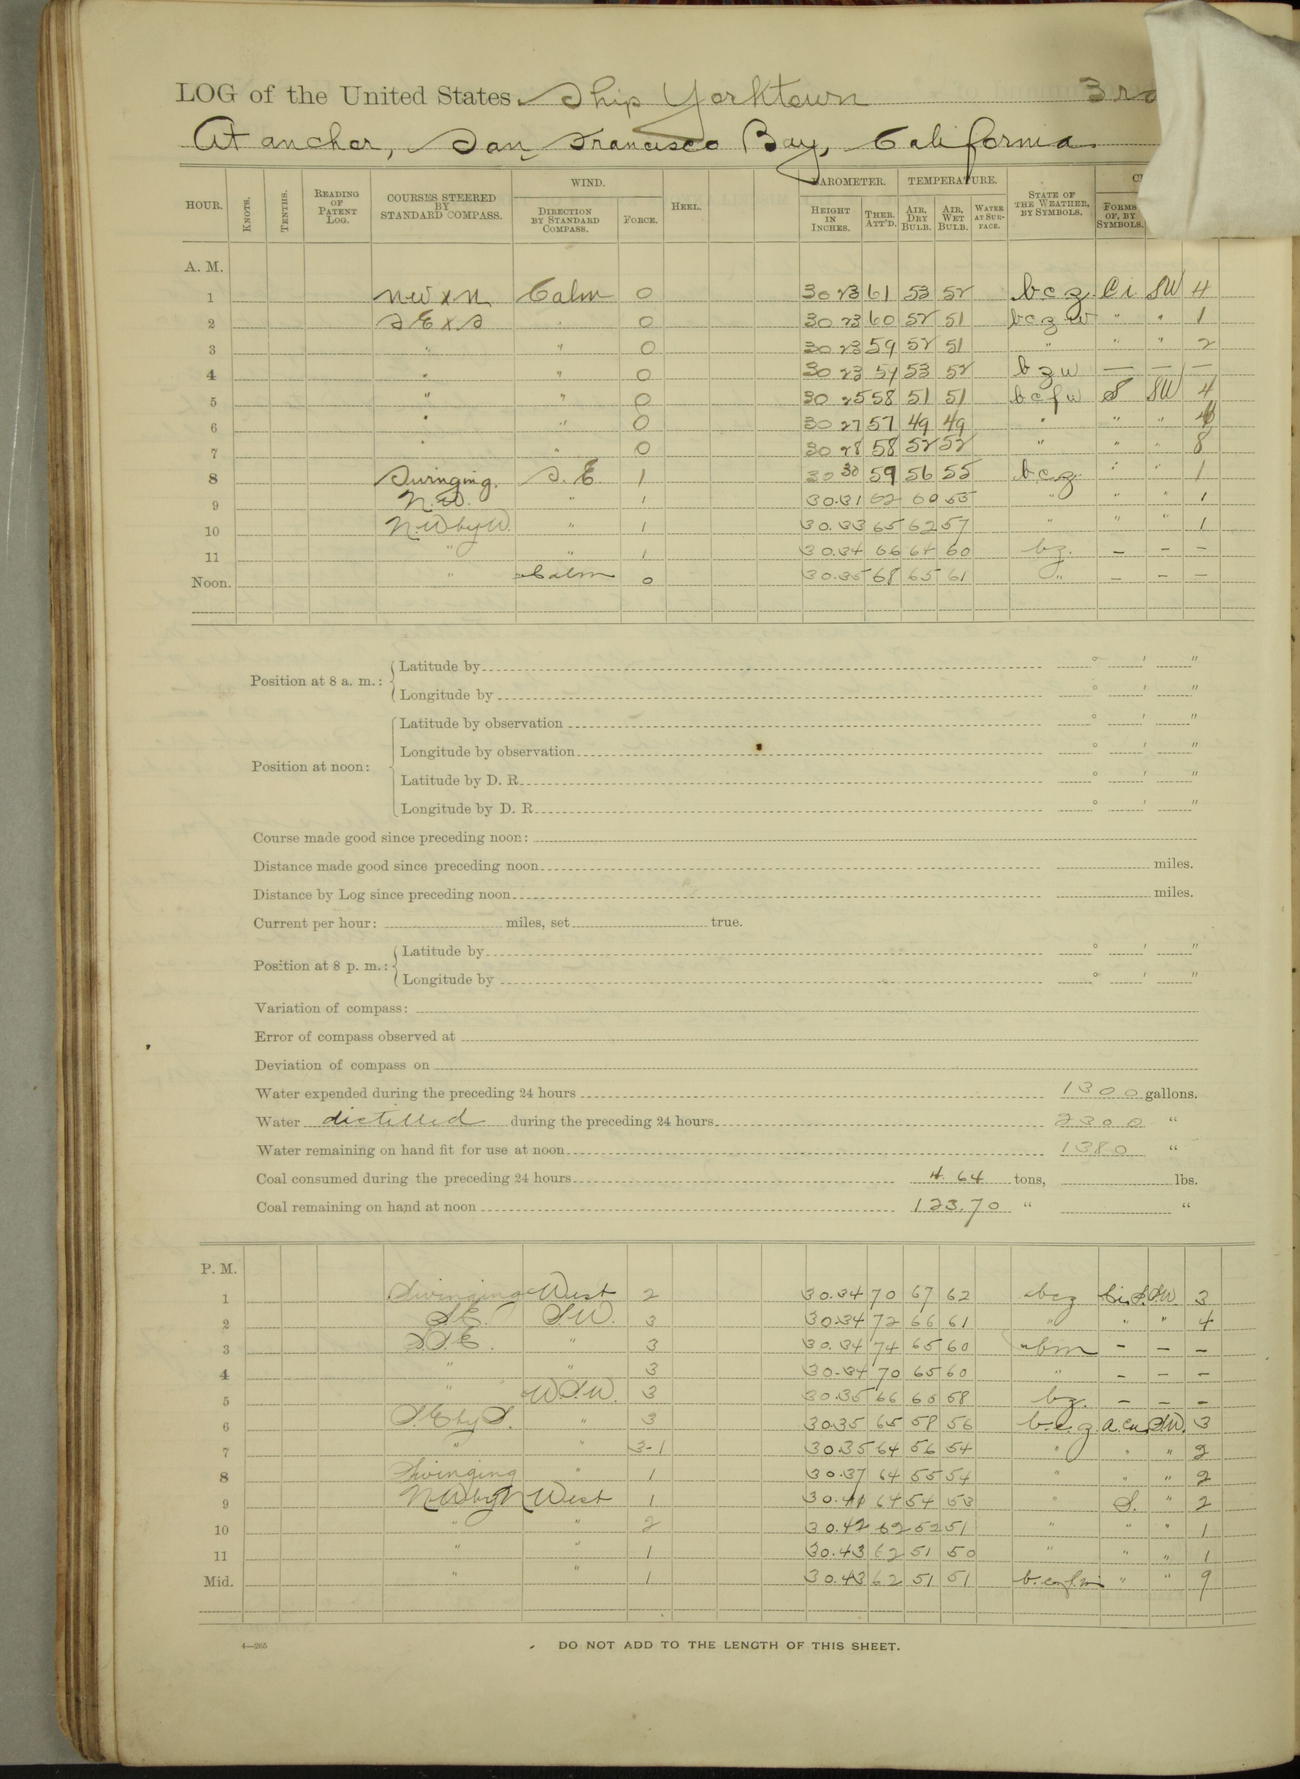 LOG of the United States Ship Yorktown 3rd
At anchor, San Francisco Bay, California
HOUR. KNOTS. TENTHS. READING OF PATENT LOG. COURSES STEERED BY STANDARD COMPASS. WIND. DIRECTION BY STANDARD COMPASS. FORCE. HEEL. BAROMETER. HEIGHT IN INCHES. THER. ATT'D. TEMPERATURE. AIR, DRY BULB. AIR, WET BULB. WATER AT SURFACE. STATE OF THE WEATHER, BY SYMBOLS. FORMS OF, BY SYMBOLS.
A. M.
1 NW x N Calm 0 30 23 61 53 52 bcz Ci SW 4
2 SE x S " 0 30 23 60 52 51 bczw " " 1
3 " " 0 30 23 59 52 51 " " " 2
4 " " 0 30 23 59 53 52 bzw — — —
5 " " 0 30 25 58 51 51 bcfw S SW 4
6 " " 0 30 27 57 49 49 " " "
7 " " 0 30 28 58 52 52 " " " 8
8 Swinging. S. E 1 30 30 59 56 55 bcz " " 1
9 N.W. " 1 30.31 62 60 55 " " " 1
10 N.W by W. " 1 30.33 65 62 57 " " " 1
11 " " 1 30.34 66 64 60 bz. – – –
Noon. " Calm 0 30.35 68 65 61 " – – –
Position at 8 a. m.: Latitude by ° ' "
Longitude by ° ' "
Position at noon: Latitude by observation ° ' "
Longitude by observation ° ' "
Latitude by D. R. ° ' "
Longitude by D. R. ° ' "
Course made good since preceding noon:
Distance made good since preceding noon miles.
Distance by Log since preceding noon miles.
Current per hour: miles, set true.
Position at 8 p. m.: Latitude by ° ' "
Longitude by ° ' "
Variation of compass:
Error of compass observed at
Deviation of compass on
Water expended during the preceding 24 hours 1300 gallons.
Water distilled during the preceding 24 hours 2300 "
Water remaining on hand fit for use at noon 1380 "
Coal consumed during the preceding 24 hours 4.64 tons, lbs.
Coal remaining on hand at noon 123.70 " "
P. M.
1 Swinging West 2 30.34 70 67 62 bcz Ci.S. SW. 3
2 S.E. S.W. 3 30.34 72 66 61 " " " 4
3 S.S.E. " 3 30.34 74 65 60 bm – – –
4 " " 3 30.34 70 65 60 " – – –
5 " W.S.W. 3 30.35 66 60 58 bz. – – –
6 S.E by S. " 3 30.35 65 58 56 b.c.z. a.cu. S.W. 3
7 " " 3-1 30.35 64 56 54 " " " 2
8 Swinging " 1 30.37 64 55 54 " " " 2
9 N.W by N West 1 30.41 64 54 53 " S. " 2
10 " " 2 30.42 62 52 51 " " " 1
11 " " 1 30.43 62 51 50 " " " 1
Mid. " " 1 30.43 62 51 51 " " 9
4—265 DO NOT ADD TO THE LENGTH OF THIS SHEET.